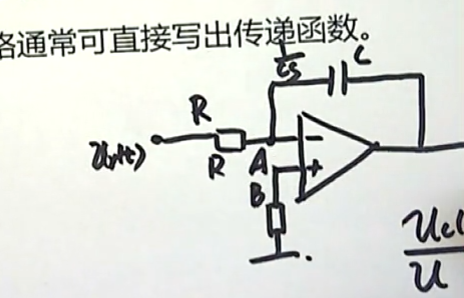 络通常可直接写出传递函数。
1/cs
C
R
R
A
B
-
+
Uc(
U